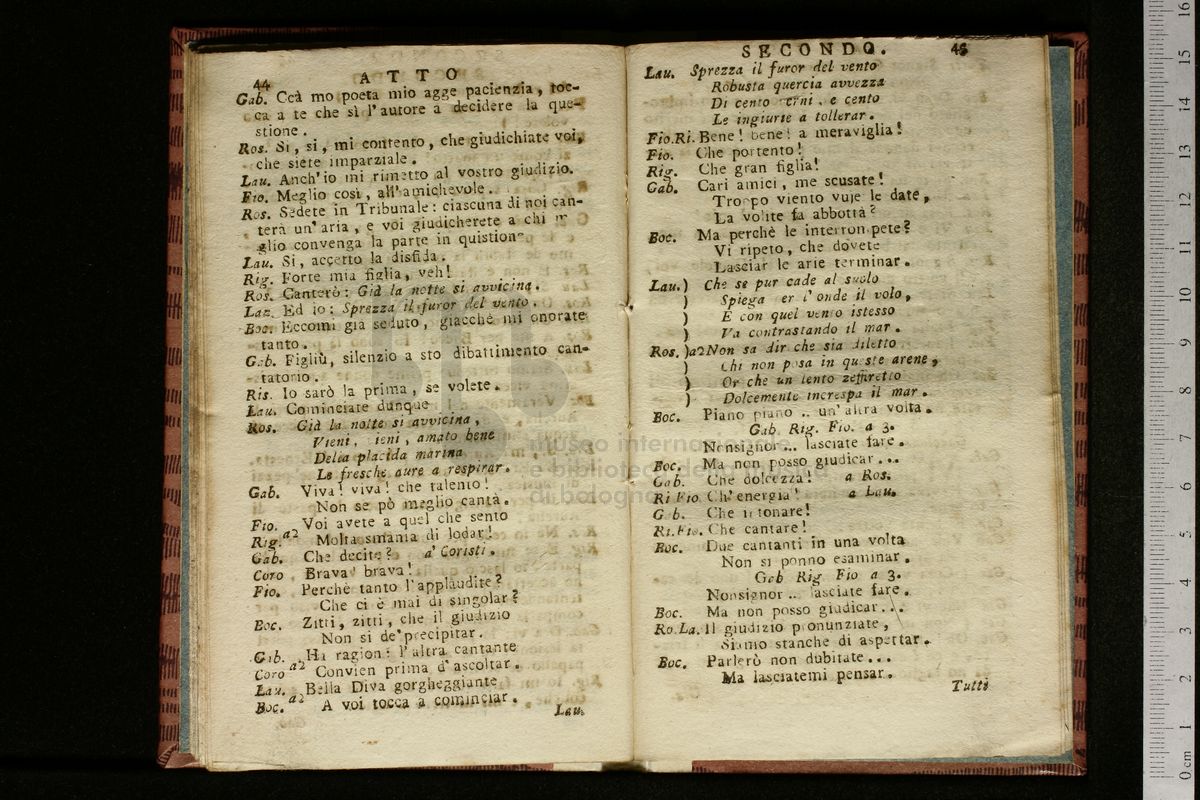 44 ATTO
Gab. Ccà mo poeta mio agge pacienzia, toc-
ca a te che sì l'autore a decidere la que-
stione.
Ros. Si, si, mi contento, che giudichiate voi,
che siete imparziale.
Lau. Anch'io mi rimetto al vostro giudizio.
Fio. Meglio così, all'amichevole.
Ros. Sedete in Tribunale: ciascuna di noi can-
terà un'aria, e voi giudicherete a chi
glio convenga la parte in quistione
Lau. Si, accetto la disfida.
Rig. Forte mia figlia, veh!
Ros. Canterò: Già la notte si avvicina.
Lau. Ed io: Sprezza il furor del vento.
Boc. Eccomi già seduto, giacchè mi onorate
tanto.
Gab. Figliù, silenzio a sto dibattimento can-
tatorio.
Ris. Io sarò la prima, se volete.
Lau. Cominciate dunque
Ros. Già la notte si avvicina,
Vieni, ieni, amato bene
Della placida marina
Le fresche aure a respirar.
Gab. Viva! viva! che talento!
Non se pò meglio cantà.
Fio. Voi avete a quel che sento
Rig. a2 Molta smania di lodar!
Gab. Che decite? a' Coristi.
Coro Brava! brava!
Fio. Perchè tanto l'applaudite?
Che ci è mai di singolar?
Boc. Zitti, zitti, che il giudizio
Non si de' precipitar.
Gab. Ha ragion: l'altra cantante
Coro a2 Convien prima d'ascoltar.
Lau. Bella Diva gorgheggiante
Boc. a2 A voi tocca a cominciar.
Lau.
SECONDO. 45
Lau. Sprezza il furor del vento
Robusta quercia avvezza
Di cento verni, e cento
Le ingiurie a tollerar.
Fio.Ri. Bene! bene! a meraviglia!
Fio. Che portento!
Rig. Che gran figlia!
Gab. Cari amici, me scusate!
Troppo viento vuje le date,
La volite fa abbottà?
Boc. Ma perchè le interrompete?
Vi ripeto, che dovete
Lasciar le arie terminar.
Lau. ) Che se pur cade al suolo
) Spiega er l'onde il volo,
) E con quel vento istesso
) Va contrastando il mar.
Ros. )a2 Non sa dir che sia diletto
) Chi non posa in queste arene,
) Or che un lento zeffiretto
) Dolcemente increspa il mar.
Boc. Piano piano .. un'altra volta.
Gab. Rig. Fio. a 3.
Nonsignor... lasciate fare.
Boc. Ma non posso giudicar...
Gab. Che dolcezza! a Ros.
Ri Fio. Ch'energia! a Lau.
G b. Che intonare!
Ri.Fio. Che cantare!
Boc. Due cantanti in una volta
Non si ponno esaminar.
Gab Rig Fio a 3.
Nonsignor .. lasciate fare.
Boc. Ma non posso giudicar...
Ro.La. Il giudizio pronunziate,
Siamo stanche di aspettar.
Boc. Parlerò non dubitate...
Ma lasciatemi pensar.
Tutti
museo internazionale
e biblioteca della musica
di bologna